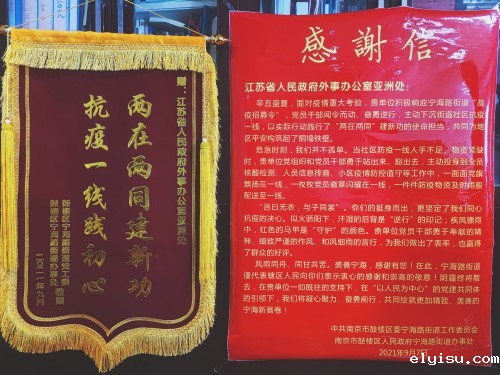 赠：江苏省人民政府外事办公室亚洲处
两在两同建新功
抗疫一线践初心
二〇二一年九月
感謝信
江苏省人民政府外事办公室亚洲处：
辛丑盛夏，面对疫情重大考验，贵单位积极响应宁海路街道“战
疫招募令”，党员干部闻令而动、奋勇逆行，主动下沉街道社区抗疫
一线，以实际行动践行了“两在两同”建新功的使命担当，共同为地
区平安构筑起了铜墙铁壁。
危急时刻，我们并不孤单。当社区防疫一线人手不足、物资紧缺
时，贵单位党组织和党员干部勇于站出来、豁出去，主动投身到全员
核酸检测、人员信息排查、小区疫情防控值守等工作中，一面面党旗
飘扬在一线，一枚枚党员徽章闪耀在一线，一件件防疫物资及时
配送至一线。
“岂曰无衣，与子同裳”，你们的挺身而出，更坚定了我们同心
抗疫的决心。似火骄阳下，汗湿的后背是“逆行”的印记；疾风骤雨
中，红色的马甲是“守护”的颜色。贵单位党员干部勇于奉献的精
神、细致严谨的作风、和风细雨的言行，为我们做出了表率，也赢得
了群众的好评。
风雨同舟，同甘共苦。美善宁海，感谢有您！在此，宁海路街道
谨代表辖区人民向你们表示衷心的感谢和崇高的敬意！阴霾终将散
去，在贵单位一如既往的支持下，在“以人民为中心”的党建共同体
的引领下，我们将凝心聚力、奋勇前行，共同绘就更加精致、美善的
宁海新画卷！
中共南京市鼓楼区委宁海路街道工作委员会
南京市鼓楼区人民政府宁海路街道办事处
2021年9月7日
elyisu.com